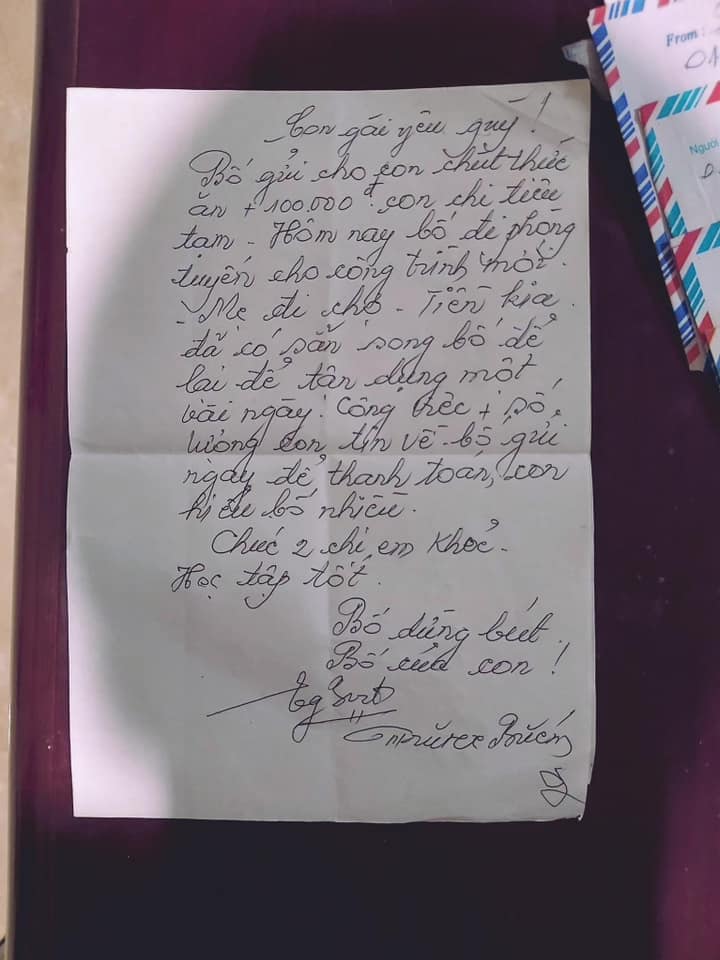 From :
Người
Con gái yêu quý !
Bố gửi cho con chút thức
ăn + 100.000đ con chi tiêu
tạm - Hôm nay bố đi phóng
tuyến cho công trình mới.
- Mẹ đi chợ - Tiền kia
đã có sẵn song bố để
lại để tận dụng một
vài ngày. Công việc + số
lượng con tin về bố gửi
ngay để thanh toán, con
hiểu bố nhiều.
Chúc 2 chị em khoẻ -
Học tập tốt.
Bố dừng bút.
Bố của con !